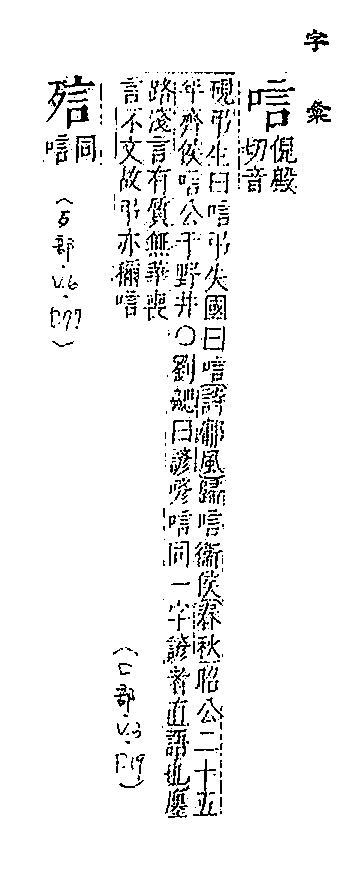 字彙
唁
倪殿
切音
硯弔生曰唁弔失國曰唁詩鄘風歸唁衞侯春秋昭公二十五
年齊侯唁公于野井○劉勰曰諺喭唁同一字諺者直語也廛
路淺言有質無華喪
言不文故弔亦稱唁
(口部·V.3·P.19)
㱦
同
唁
(歹部·V.6·P.77)